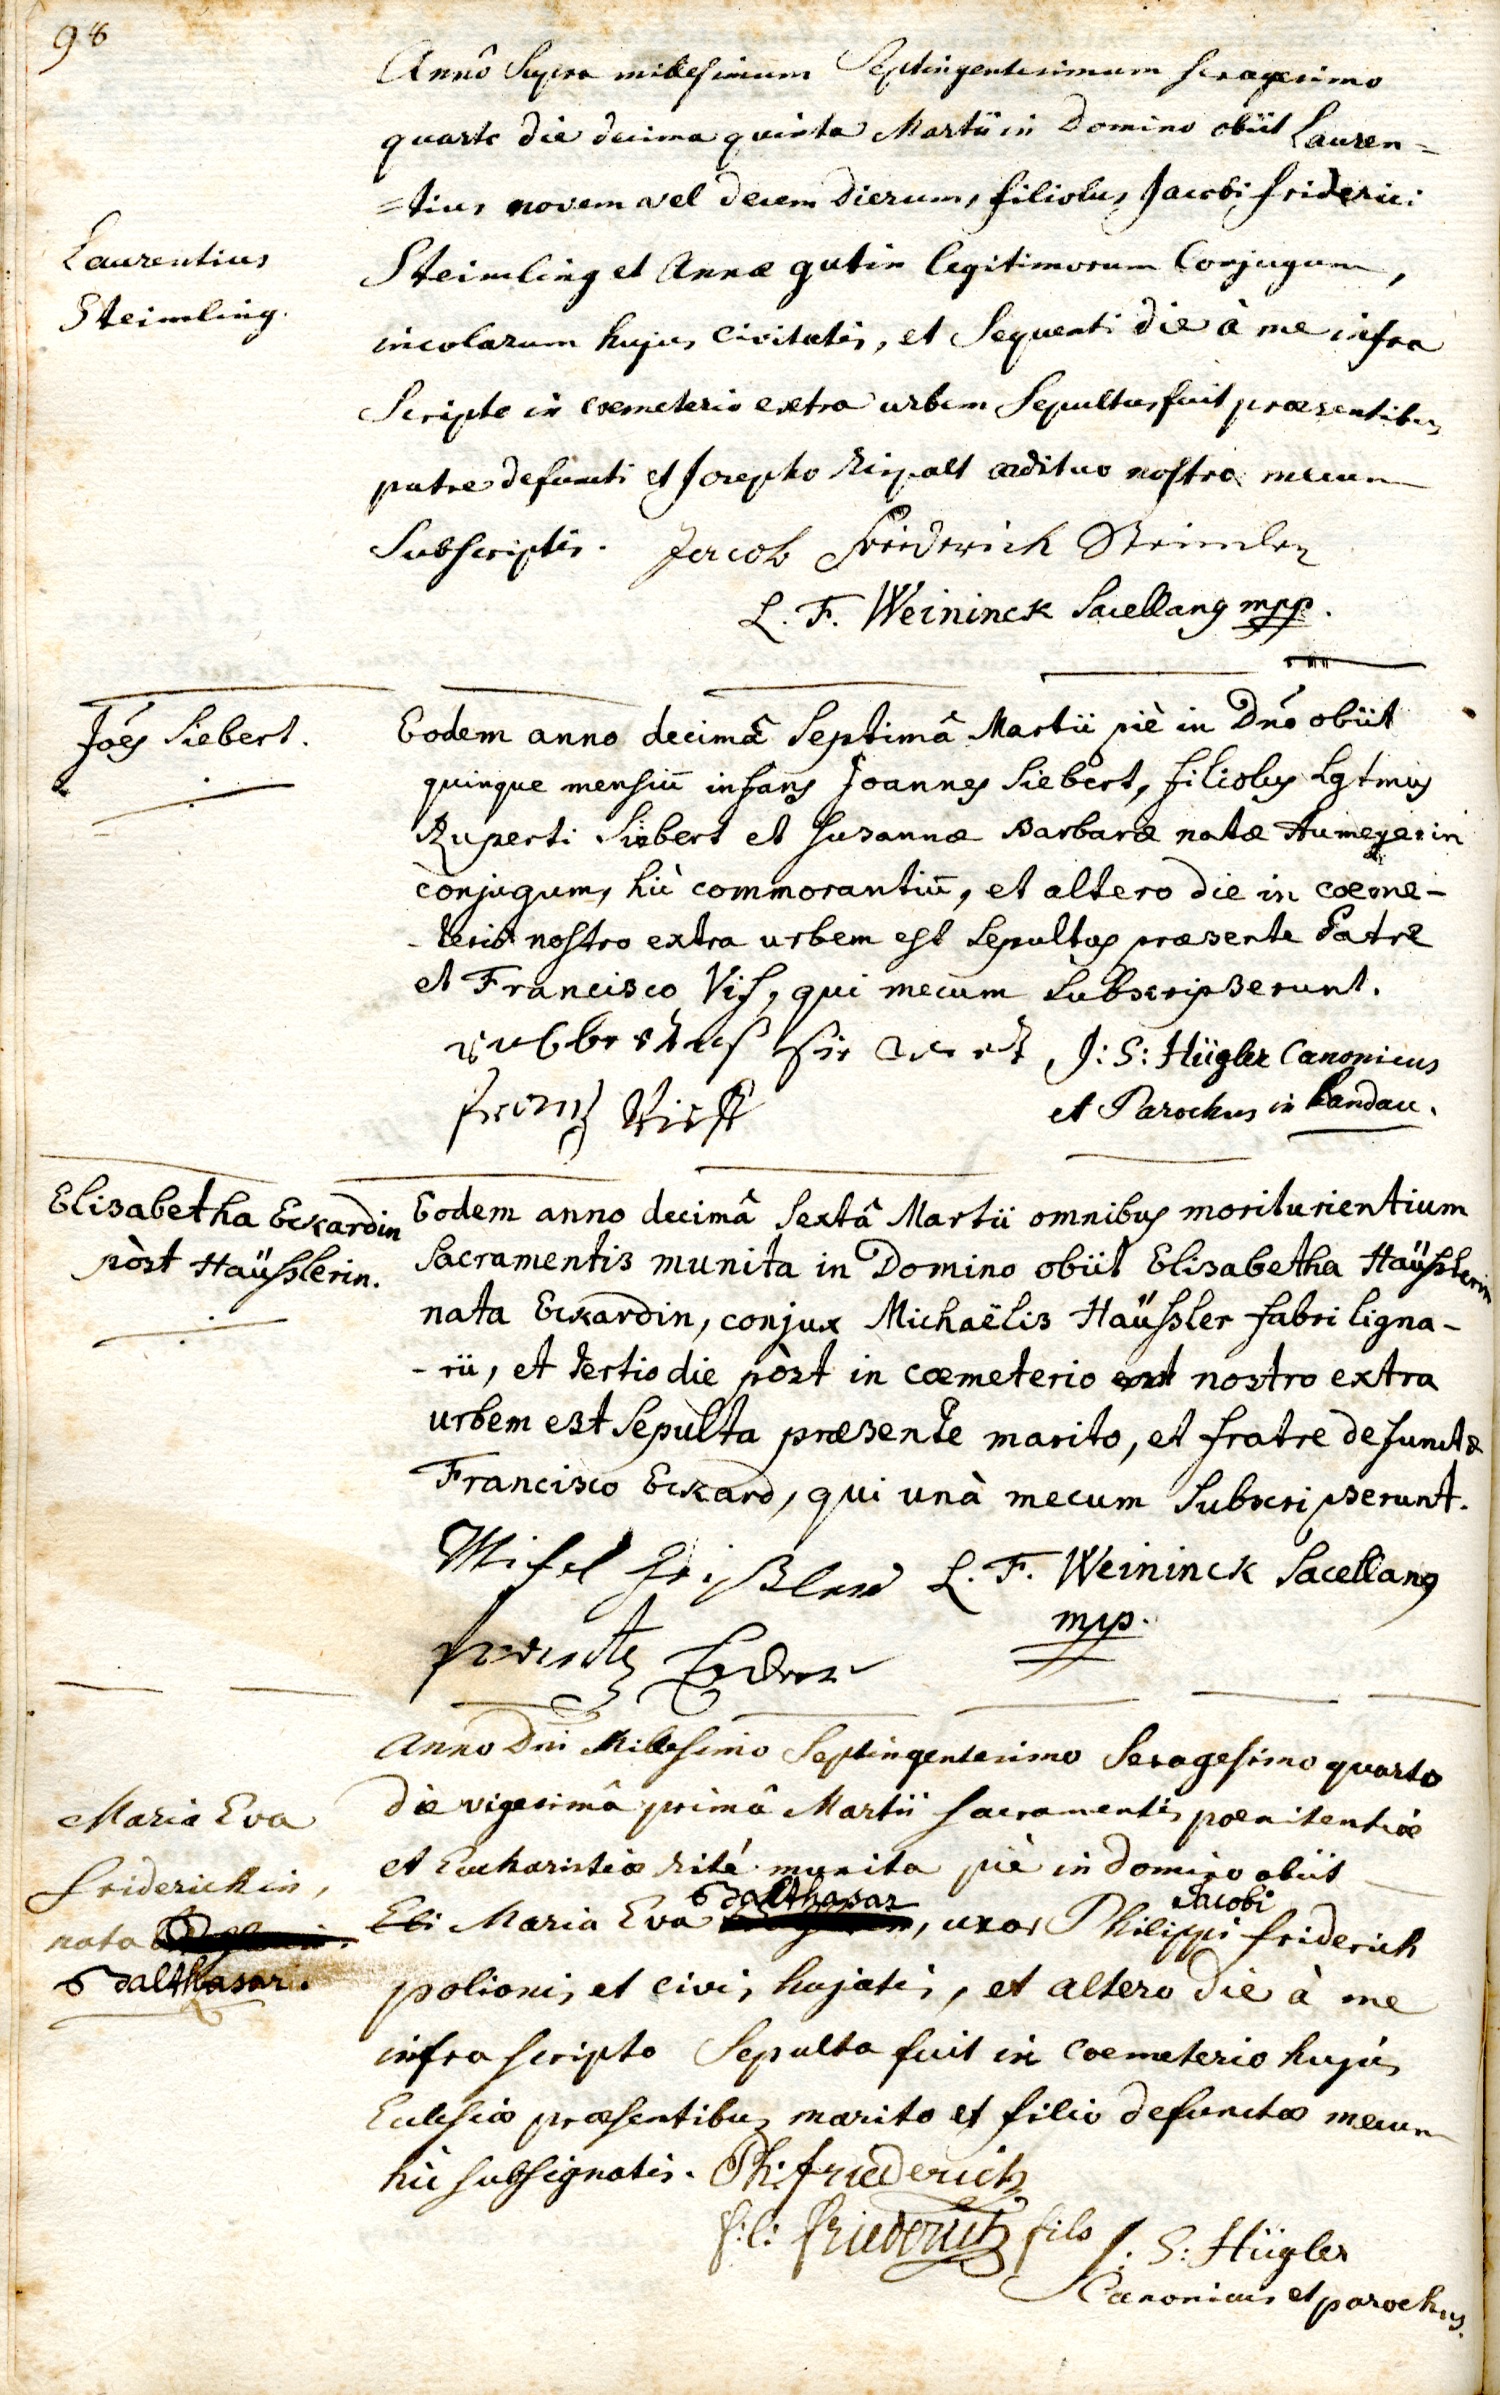 98
Annô Supra millesimum Septingentesimum sexagesimo
quarto die decima quinta Martii in Domino obiit Lauren=
=tius novem vel decem dierum, filiolus Jacobi friderici
Laurentius
Steimling.
Steimling et Annæ gutin legitimorum Conjugum,
incolarum hujus Civitatis, et Sequenti die à me infra
Scripto in cœmeterio extra urbem Sepultus fuit præsentibus
patre defuncti et Josepho Ripalt ædituo nostro mecum
Subscriptis. Jacob Friderich Steimlen
L. F. Weininck Sacellanus mpp.
Joés Siebert.
Eodem anno decimâ Septimâ Martii piè in Dnō obiit
quinque mensiū infans Joannes Siebert, filiolus Lgtmus
Ruperti Siebert et Susannæ Barbaræ natæ Aumeyerin
conjugum, hic commorantiū, et altero die in cœme-
-terio nostro extra urbem est Sepultus præsente Patre
et Francisco Vis, qui mecum Subscripserunt.
J: S: Hügler Canonicus
et Parochus in Landau.
Frantz
Elisabetha Eckardin
pòst Haüsslerin.
Eodem anno decimâ Sextâ Martii omnibus moriturientium
Sacramentis munita in Domino obiit Elisabetha Haüsslerin
nata Eckardin, conjux Michaëlis Haüssler fabri ligna-
-rii, et tertio die pòst in cœmeterio ext nostro extra
urbem est Sepulta præsente marito, et fratre defunctæ
Francisco Eckard, qui unà mecum Subscripserunt.
Michel Heißler L. F. Weininck Sacellanus
mpp.
Frantz
Anno Dni Millesimo Septingentesimo Sexagesimo quarto
die vigesimâ primâ Martii Sacramentis pœnitentiæ
et Eucharistiæ rité munita piè in domino obiit
Maria Eva
friderickin,
nata
Balthasar.
Balthasar Jacobi
Eli Maria Eva , uxor Philippi friderich
polionis et civis hujatis, et altero die à me
infra scripto Sepulta fuit in Coemeterio hujus
Ecclesiæ præsentibus marito et filio defunctæ mecum
hic subsignatis. Ph: friederich
f: l: friederich fils J: S: Hügler
Canonicus et parochus.